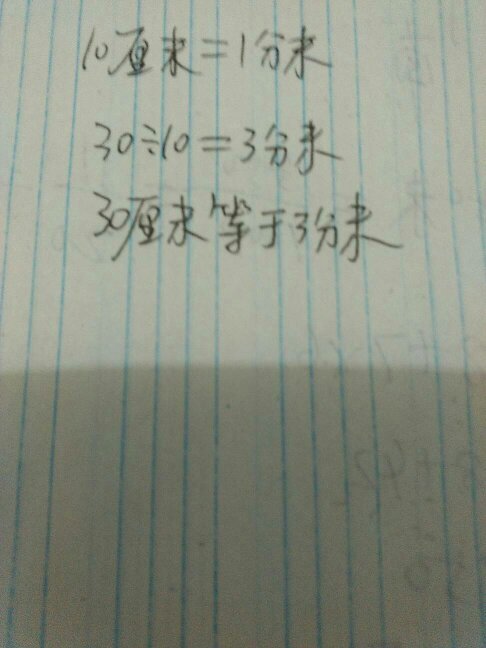 10厘米=1分米
30÷10=3分米
30厘米等于3分米